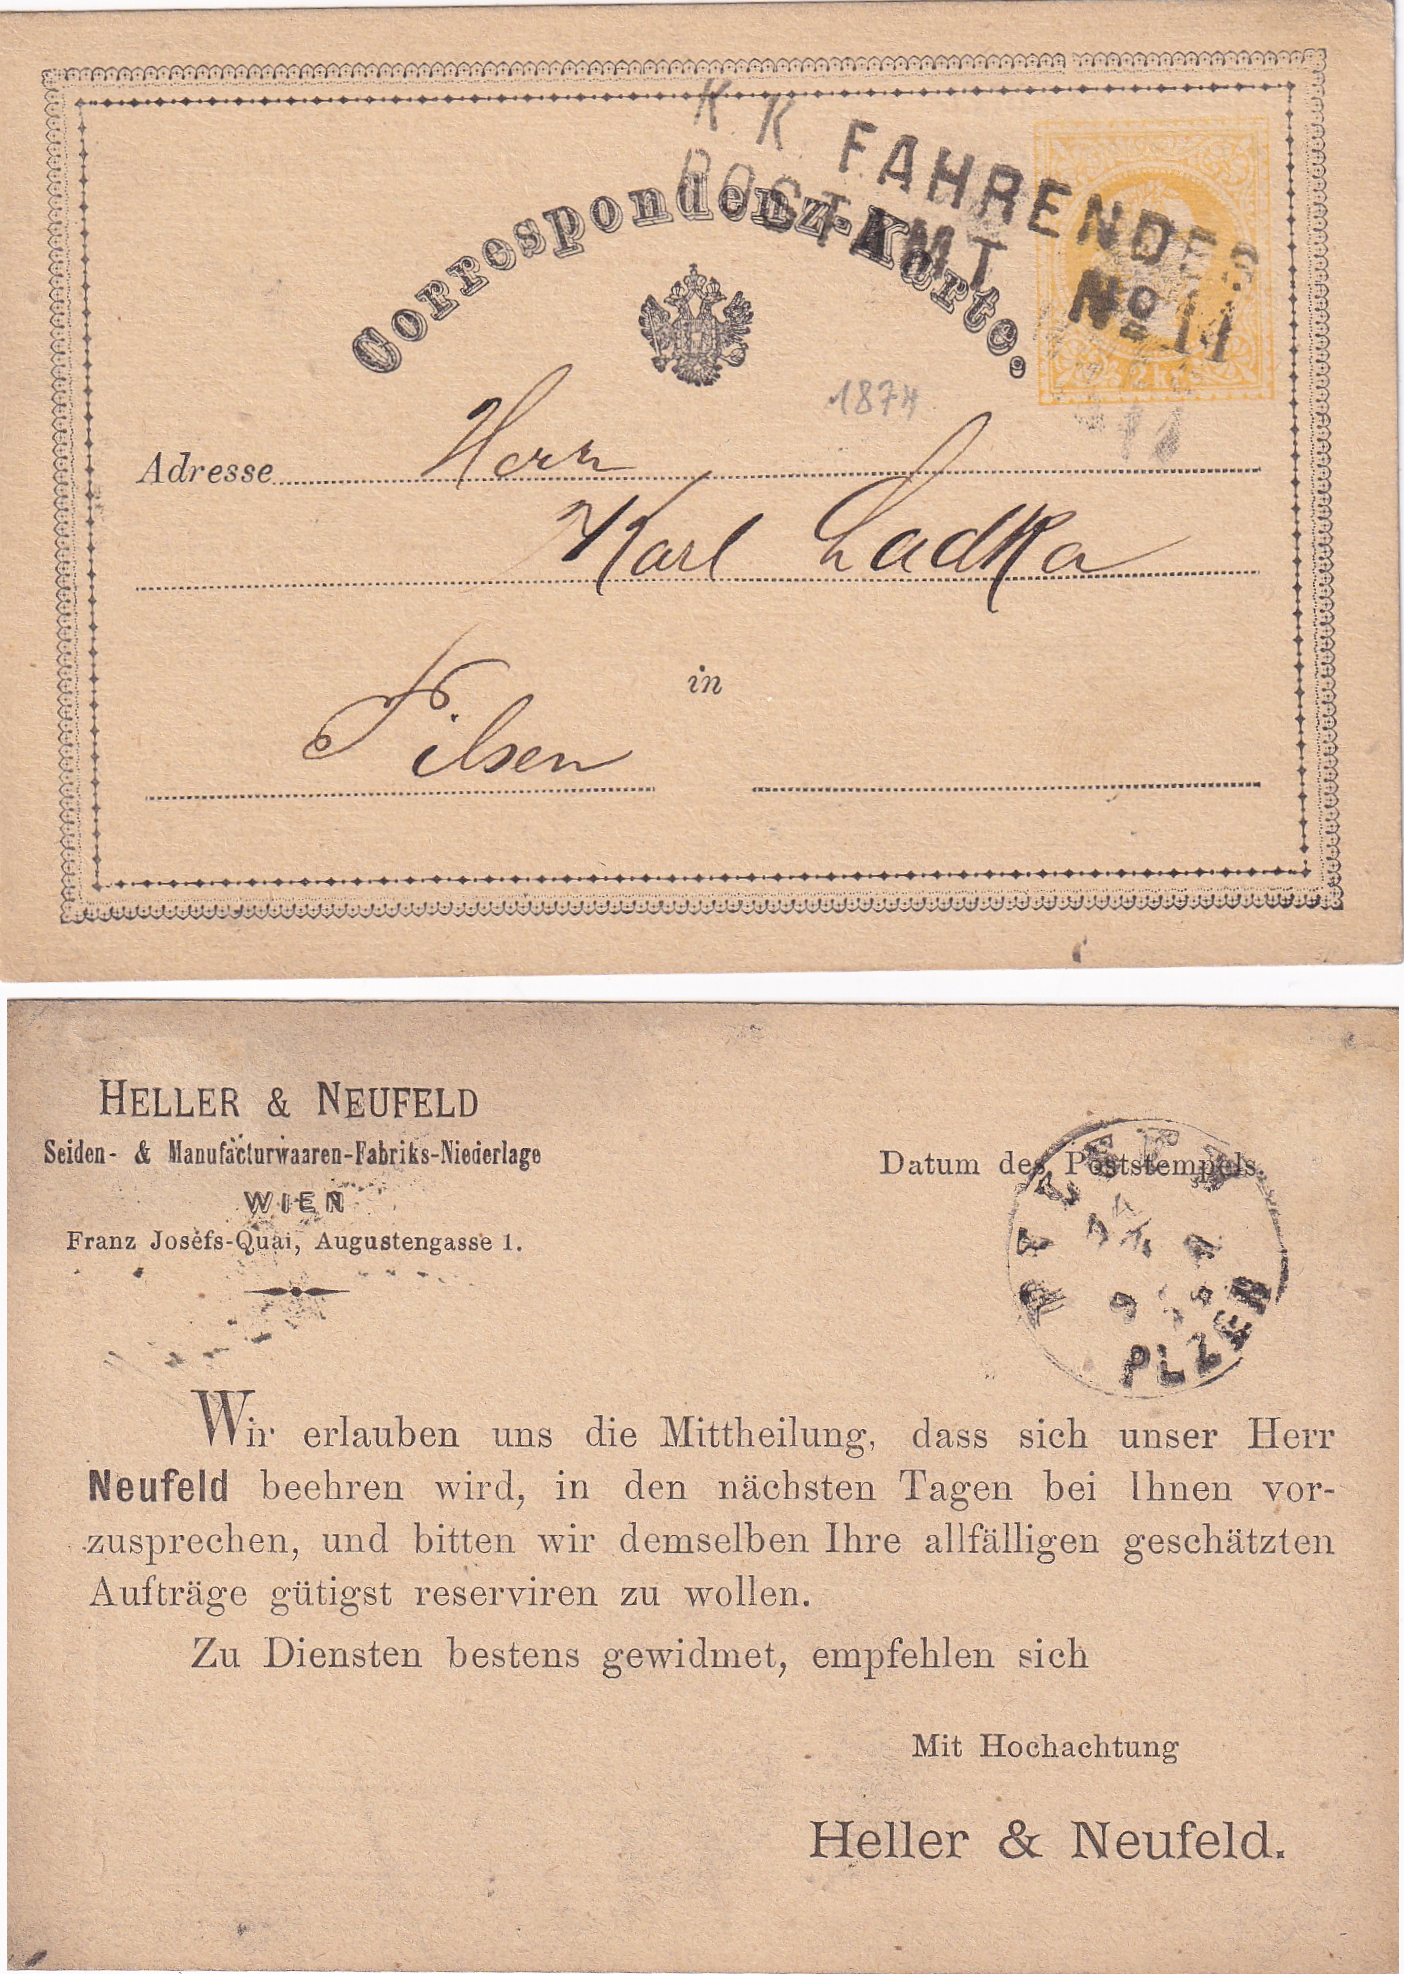 K. K. FAHRENDES
POSTAMT No 11
Correspondenz-Karte.
2 kr
1874
Adresse Herr
Karl Ladka
in
Pilsen
HELLER & NEUFELD
Seiden- & Manufacturwaaren-Fabriks-Niederlage
WIEN
Franz Josefs-Quai, Augustengasse 1.
Datum des Poststempels.
PILSEN
PLZEN
Wir erlauben uns die Mittheilung, dass sich unser Herr
Neufeld beehren wird, in den nächsten Tagen bei Ihnen vor-
zusprechen, und bitten wir demselben Ihre allfälligen geschätzten
Aufträge gütigst reserviren zu wollen.
Zu Diensten bestens gewidmet, empfehlen sich
Mit Hochachtung
Heller & Neufeld.